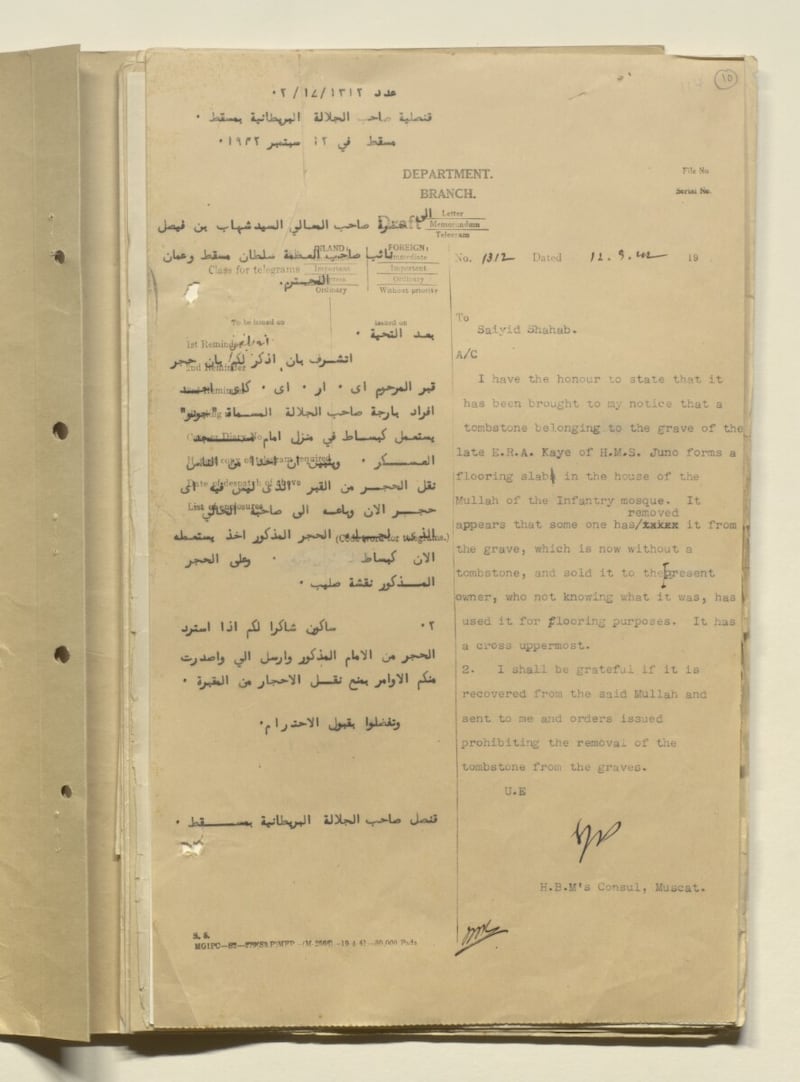 ١٥
عدد ١٣١٢/١٧/٠٢
قنصلية صاحب الجلالة البريطانية بمسقط ٠
مسقط في ١٢ سبتمبر ١٩٤٢ ٠
DEPARTMENT.
BRANCH.
File No
Serial No.
Draft
Letter
Memorandum
Telegram
الى
حضرة صاحب المعالي السيد شهاب بن فيصل
نائب صاحب العظمة سلطان مسقط وعمان
المحترم.
INLAND:
Important
Express
Ordinary
FOREIGN:
Immediate
Important
Ordinary
Without priority
Class for telegrams
No. 1312 Dated 12.9.42 19
To be issued on
issued on
1st Reminder
2nd Reminder
Reminder
Diary No.
copy of telegram required
Date of despatch of above
List of enclosures
(Code word for telegrams.)
بعد التحية ٠
اتشرف بان اذكر لكم بان حجر
قبر المرحوم اى ٠ ار ٠ اى ٠ كاى احد
افراد بارجة صاحب الجلالة المسماة "جونو"
يستعمل كبساط في منزل امام مسجد
العسكر ٠ ويتبين ان احدا من الناس
نقل الحجر من القبر الذى ليس فيه اى
حجر الان وباعه الى صاحبه الحالي
الحجر المذكور اخذ يستعمله
الان كبساط ٠ وعلى الحجر
المذكور نقشة صليب ٠
٠٢ ساكون شاكرا لكم اذا استرد
الحجر من الامام المذكور وارسل الي واصدرت
منكم الاوامر بمنع نقل الاحجار من المقبرة ٠
وتفضلوا بقبول الاحترام٠
قنصل صاحب الجلالة البريطانية بمسقط ٠
To
Saiyid Shahab.
A/C
I have the honour to state that it
has been brought to my notice that a
tombstone belonging to the grave of the
late E.R.A. Kaye of H.M.S. Juno forms a
flooring slab in the house of the
Mullah of the Infantry mosque. It
removed
appears that some one has/ it from
the grave, which is now without a
tombstone, and sold it to the present
owner, who not knowing what it was, has
used it for flooring purposes. It has
a cross uppermost.
2. I shall be grateful if it is
recovered from the said Mullah and
sent to me and orders issued
prohibiting the removal of the
tombstone from the graves.
U.E
H.B.M's Consul, Muscat.
S. 8.